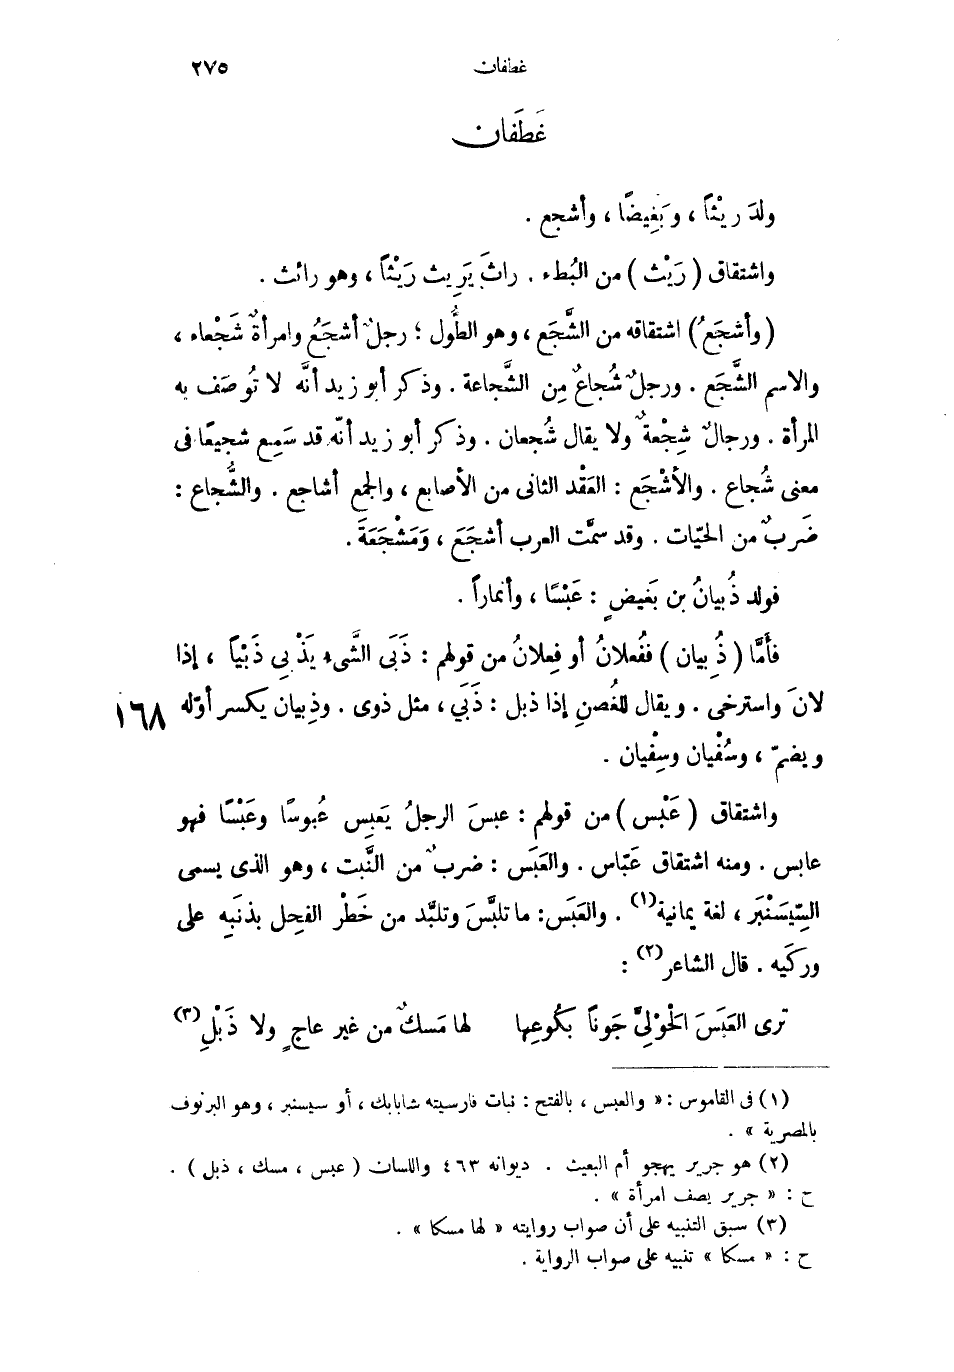 غطفان ٢٧٥
غَطَفان
ولدَ ريْثاً ، وبَغِيضًا ، وأشجع .
واشتقاق ( رَيْث ) من البُطء . راثَ يَرِيث رَيْثاً ، وهو رائث .
( وأشجَعُ ) اشتقاقه من الشَّجَع ، وهو الطُّول ؛ رجلٌ أشجَعُ وامرأةٌ شَجْعاء ،
والاسم الشَّجَع . ورجلٌ شُجاعٌ مِن الشَّجاعة . وذكر أبو زيد أنَّه لا تُوصَف به
المرأة . ورجالٌ شِجْعةٌ ولا يقال شُجعان . وذكر أبو زيد أنّه قد سَمِع شجيعًا فى
معنى شُجاع . والأشْجَع : العَقْد الثانى من الأصابع ، والجمع أشاجع . والشُّجاع :
ضَربٌ من الحيّات . وقد سمَّت العرب أشجَعَ ، وَمَشْجَعَةَ .
فولد ذُبيانُ بن بَغيضٍ : عَبْسًا ، وأنماراً .
فأمَّا ( ذُبِيان ) ففُعلانُ أو فِعلانُ من قولهم : ذَبَى الشَّىء يَذْبِي ذَبْياً ، إذا
لانَ واسترخى . ويقال للغُصنِ إذا ذبل : ذَبَي ، مثل ذوى . وذِبيان يكسر أوّله ١٦٨
ويضمّ ، وسُفْيان وسِفْيان .
واشتقاق ( عَبْس ) من قولهم : عبسَ الرجلُ يَعبِس عُبوسًا وعَبْسًا فهو
عابس . ومنه اشتقاق عَبّاس . والعَبَس : ضربٌ من النَّبت ، وهو الذى يسمى
السِّيسَنْبَر ، لغة يمانية(١) . والعَبَس : ما تلبَّسَ وتلبَّد من خَطْر الفحل بذنَبِه على
وركَيه . قال الشاعر(٢) :
ترى العَبَسَ الحَوْلِيَّ جَوناً بكُوعِها لها مَسكٌ من غير عاجٍ ولا ذَبْلِ(٣)
(١) فى القاموس : « والعبس ، بالفتح : نبات فارسيته شابابك ، أو سيسنبر ، وهو البرنوف
بالمصرية » .
(٢) هو جرير يهجو أم البعيث . ديوانه ٤٦٣ واللسان ( عبس ، مسك ، ذبل ) .
ح : « جرير يصف امرأة » .
(٣) سبق التنبيه على أن صواب روايته « لها مسكا » .
ح : « مسكا » تنبيه على صواب الرواية .